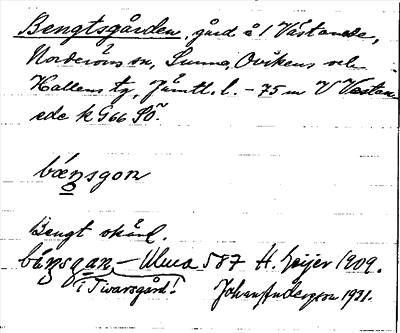 Bengtsgården, gård å 1 Västanede,
Norderöns sn, Sunne, Ovikens och
Hallens tg, Jämtl. l. – 75 m V Västan-
ede k G66 SÖ.
bænsgon
Bengt skånl.
bånsgan – Ulma 587 H. Geijer 1909.
i Tivarsgård! Johan Anderson 1921.